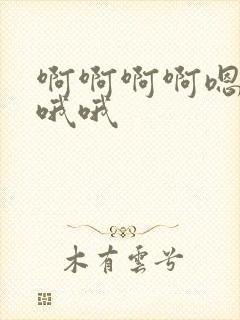 啊啊啊啊嗯
哦哦
木有雲兮